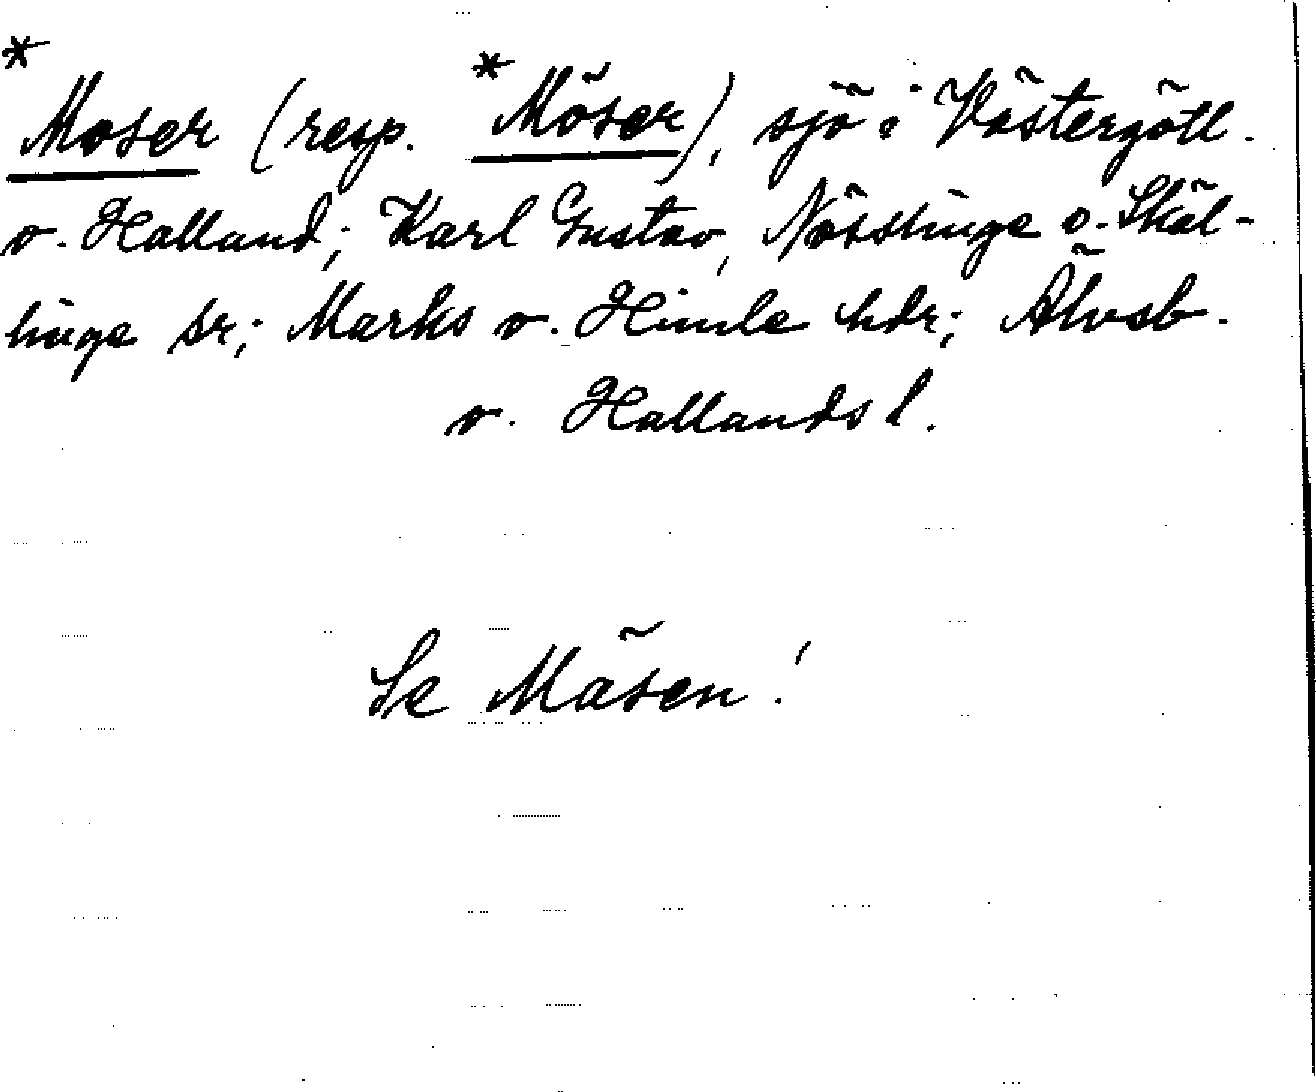 *Moser (resp. *Möser), sjö i Västergötl.
o. Halland; Karl Gustav, Nösslinge o. Skäl-
linge sr; Marks o. Himle hdr; Älvsb.
o. Hallands l.
Se Mäsen!